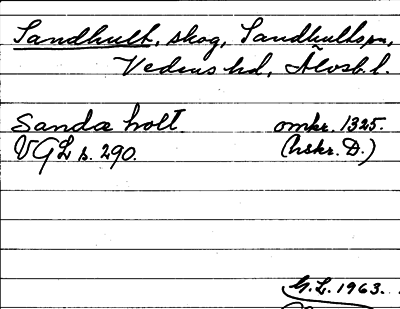 Sandhult, skog, Sandhults sn,
Vedens hd, Älvsb. l.
Sandæ holt. omkr. 1325.
VGL s. 290. (hskr. D.)
G.L. 1963.